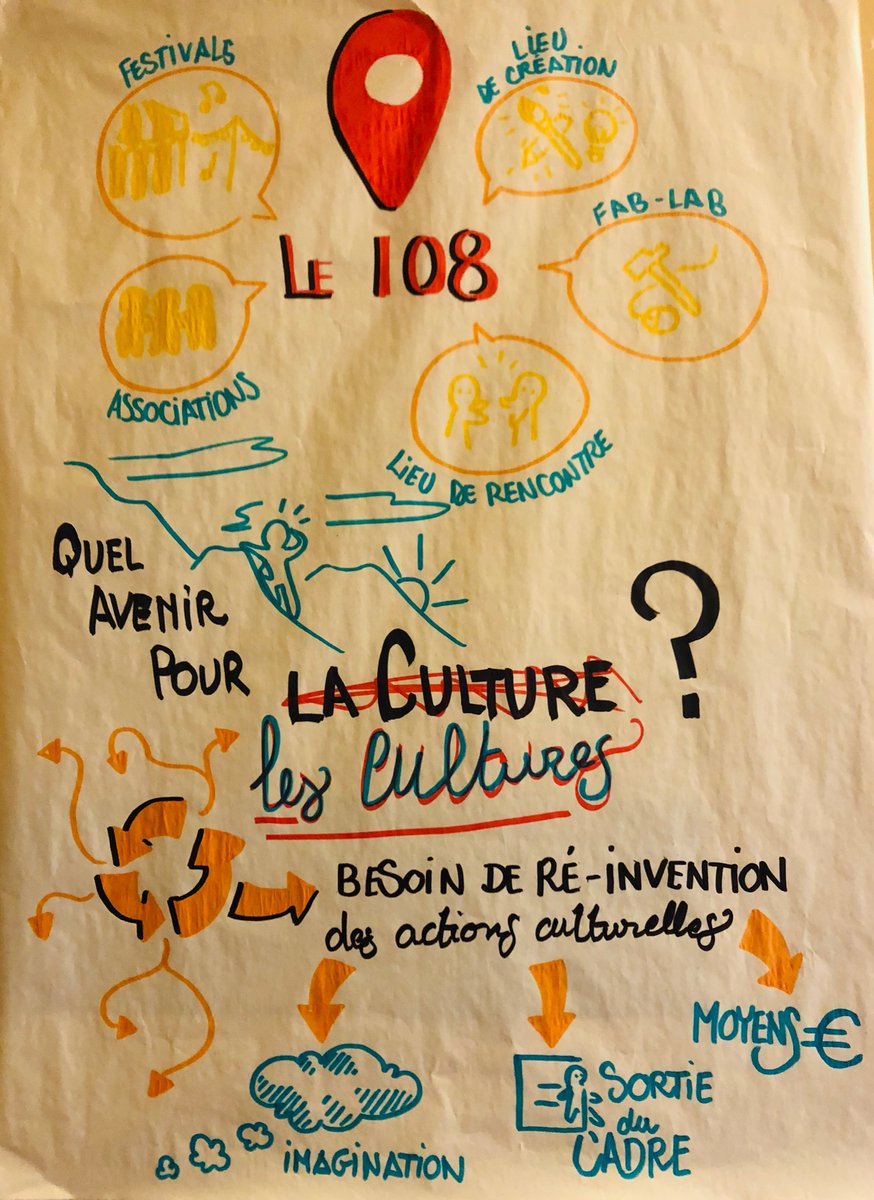 FESTIVALS
LIEU
DE CRÉATION
FAB-LAB
LE 108
ASSOCIATIONS
LIEU DE RENCONTRE
QUEL
AVENIR
POUR
LA CULTURE ?
les Cultures
BESOIN DE RÉ-INVENTION
des actions culturelles
MOYENS=€
IMAGINATION
SORTIE
du
CADRE